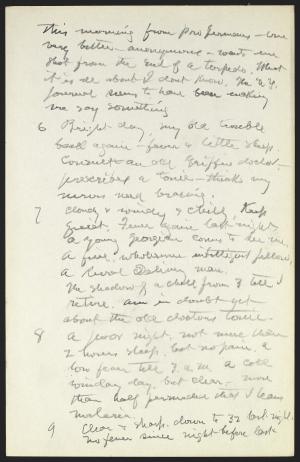 this morning from pro Germans - one
very bitter - anonymous - wants me
shot from the end of a torpedo. What
it is all about I dont know. The N.Y.
Journal seems to have been making
me say something
6 Bright day, my old trouble
back again - fever & little sleep.
Consult an old Griffin doctor.
prescribes a tonic - thinks my
nerves need bracing.
7 cloudy & windy & chilly, Keep
quiet. Fever again last night.
a young Georgian comes to see me.
A fine, wholesome intelligent fellow,
a
The shadow of a chill from 3 till I
retire. am in doubt yet
about the old doctors tonic.
8 a poor night, not more than
2 hours sleep, but no pain, a
low fever till 3 a.m. a cold
windy day, but clear. more
than half persuaded that I have
malaria.
9 Clear & sharp. down to 32 last night.
no fever since night before last